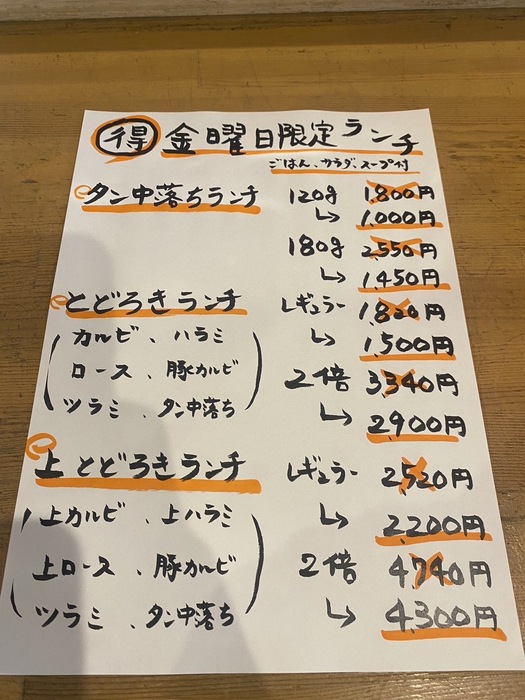 得 金曜日限定ランチ
ごはん、サラダ、スープ付
タン中落ちランチ 120g 1,800円
↳ 1,000円
180g 2,550円
↳ 1,450円
とどろきランチ レギュラー 1,800円
カルビ、ハラミ ↳ 1,500円
ロース、豚カルビ 2倍 3340円
ツラミ、タン中落ち ↳ 2,900円
上とどろきランチ レギュラー 2,520円
上カルビ、上ハラミ ↳ 2,200円
上ロース、豚カルビ 2倍 4740円
ツラミ、タン中落ち ↳ 4,300円